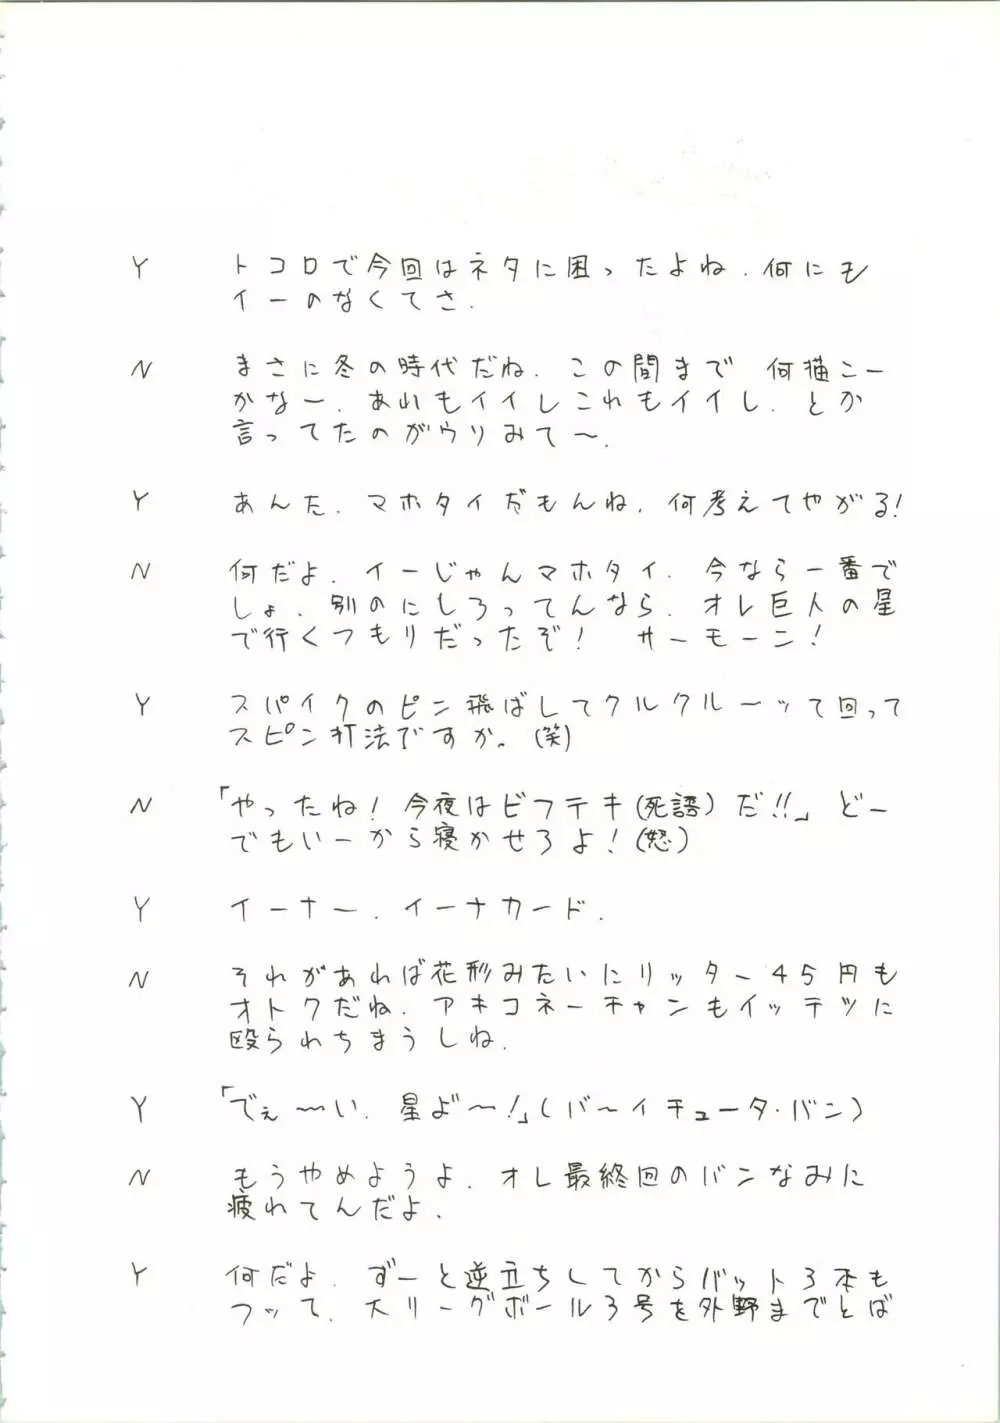 Y トコロで今回はネタに困ったよね. 何にも
イーのなくてさ.
N まさに冬の時代だね. この間まで 何描こー
かなー. あれもイイしこれもイイし. とか
言ってたのがウリみて〜.
Y あんた. マホタイだもんね. 何考えてやがる!
N 何だよ. イーじゃんマホタイ. 今なら一番で
しょ. 別のにしろってんなら. オレ巨人の星
で行くつもりだったぞ! サーモーン!
Y スパイクのピン飛ばしてクルクル〜ッて回って
スピン打法ですか。(笑)
N 「やったね! 今夜はビフテキ(死語)だ!!」どー
でもいーから寝かせろよ!(怒)
Y イーナ〜. イーナカード.
N それがあれば花形みたいにリッター45円も
オトクだね. アキコネーチャンもイッテツに
殴られちまうしね.
Y 「でぇ〜〜い. 星よ゛〜!」(バ〜イチュータ・バン)
N もうやめようよ. オレ最終回のバンなみに
疲れてんだよ.
Y 何だよ. ずーと逆立ちしてからバット3本も
フッて. 大リーグボール3号を外野までとば